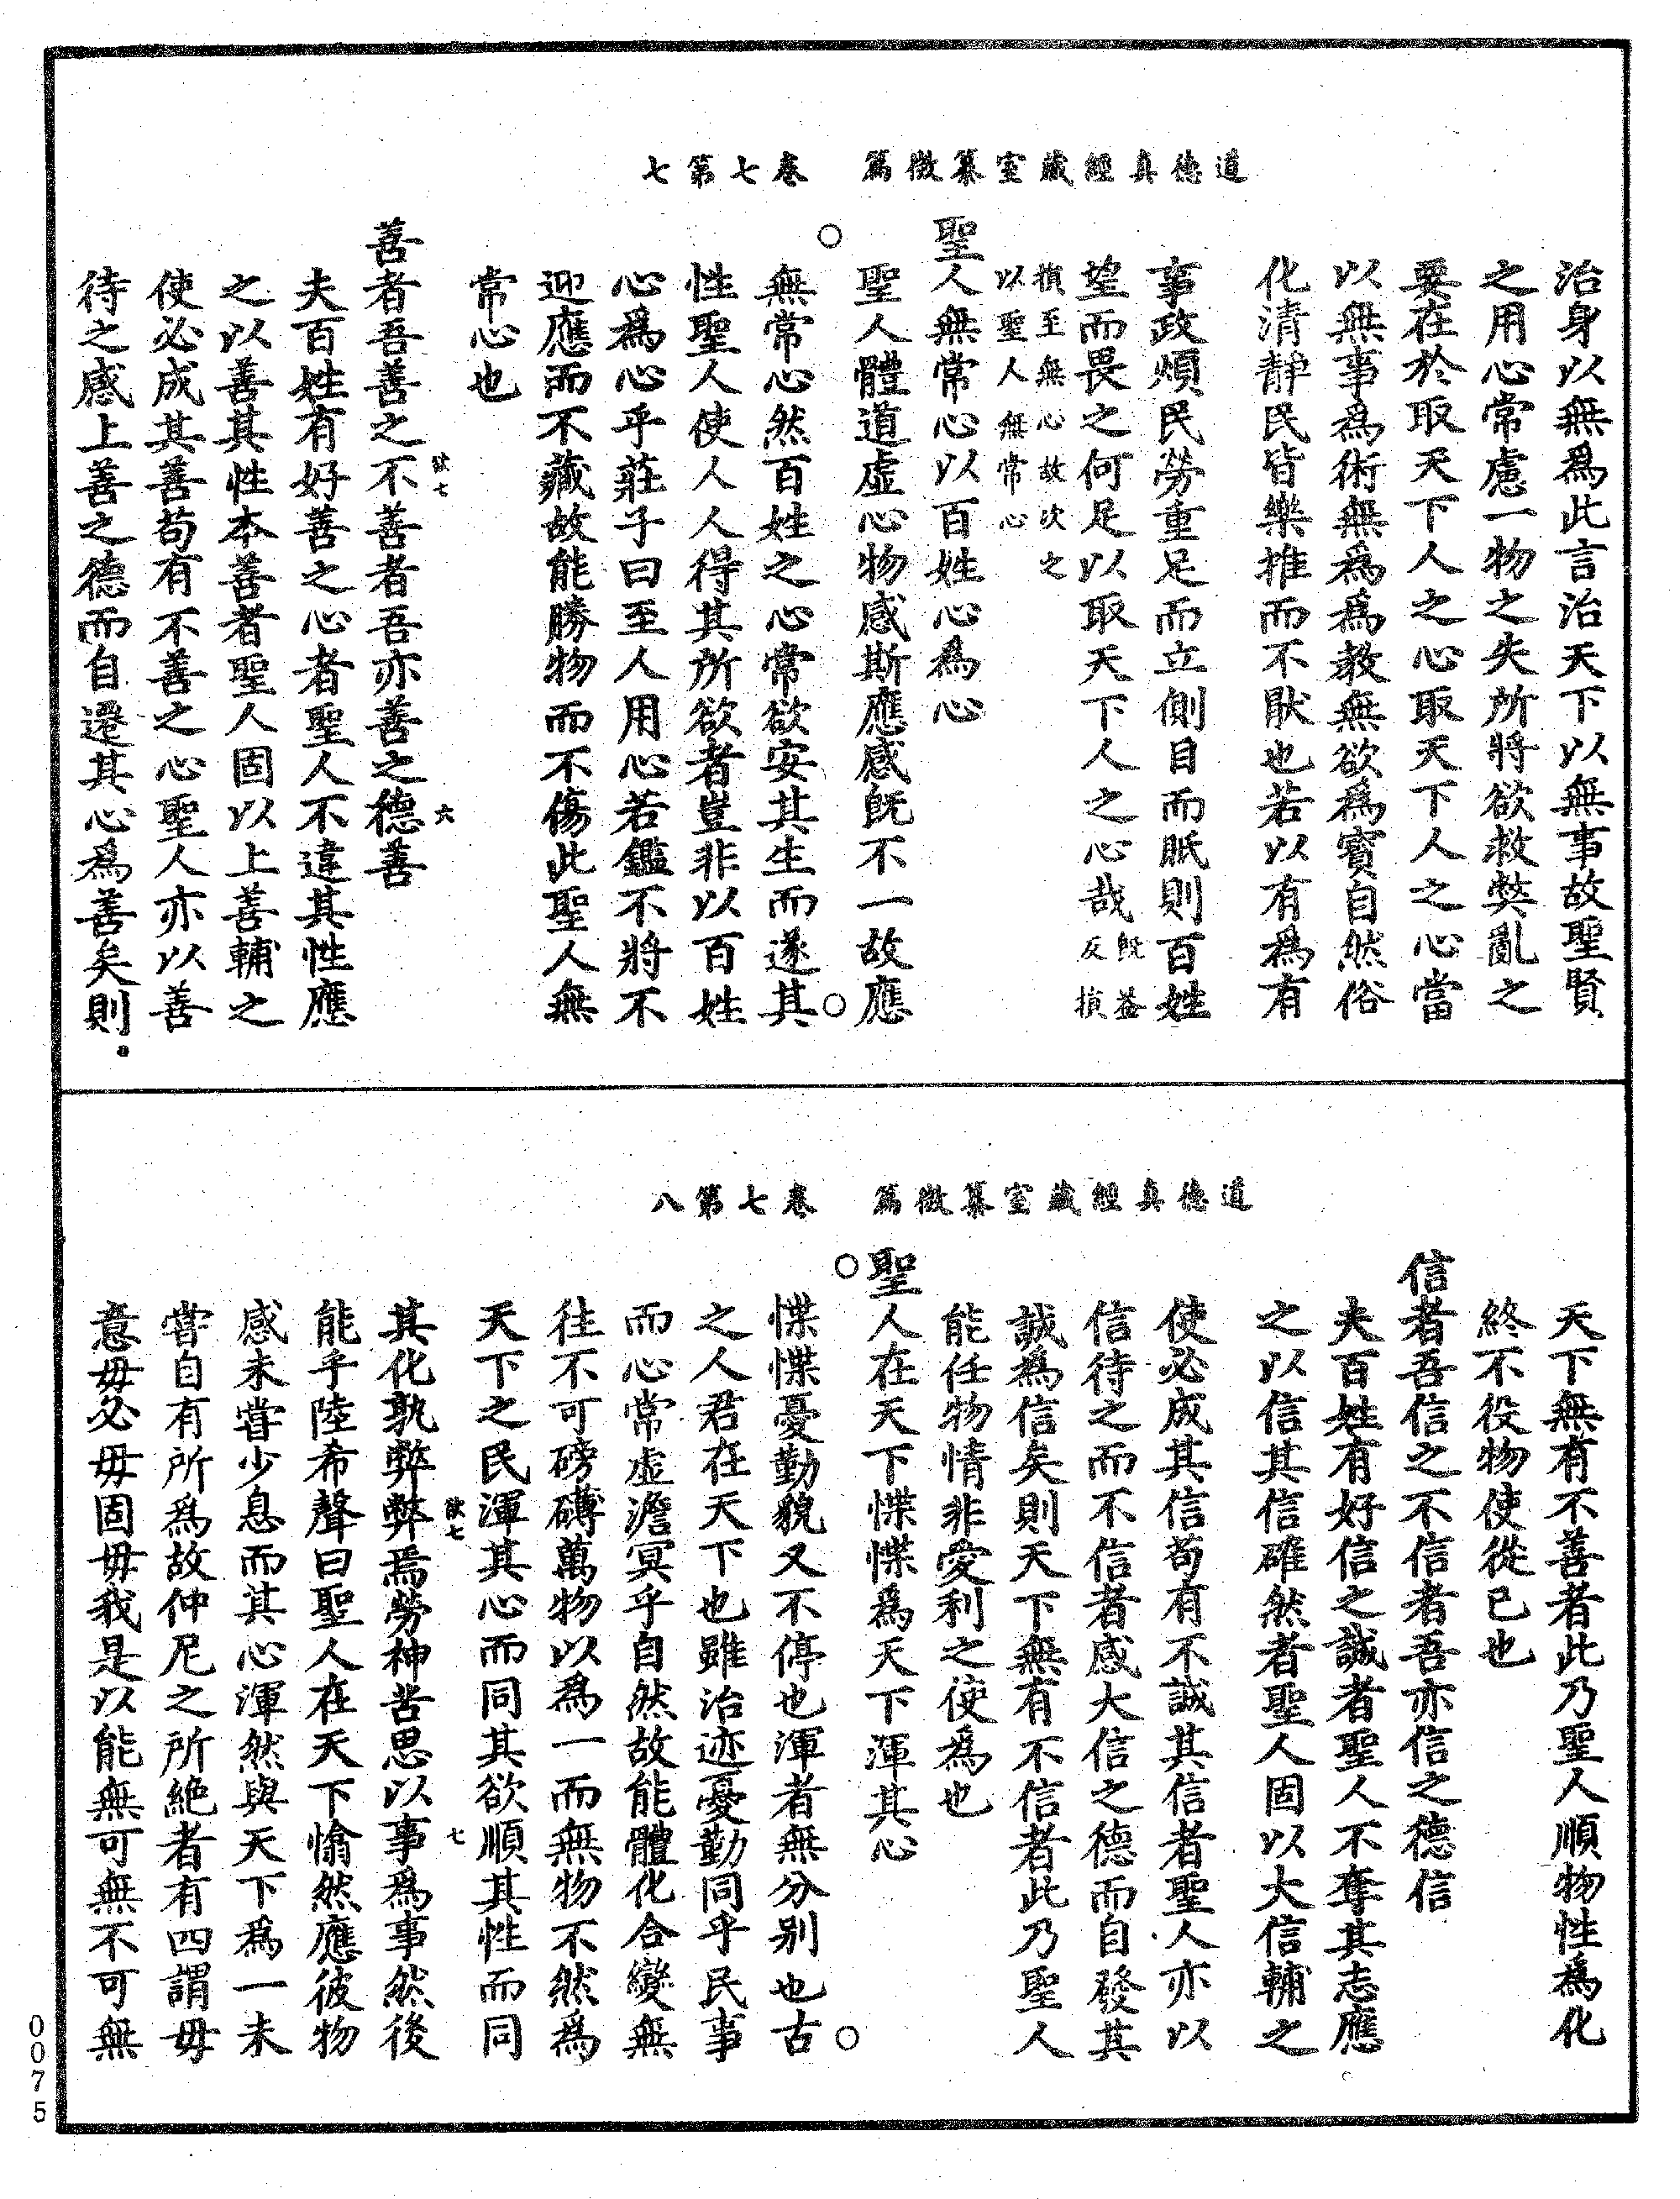 道德真經藏室纂微篇　卷七第七
治身以無爲此言治天下以無事故聖賢
之用心常慮一物之失所將欲救獘亂之
要在於取天下人之心取天下人之心當
以無事爲術無爲爲教無欲爲寳自然俗
化清靜民皆樂推而不猒也若以有爲有
事政煩民勞重足而立側目而眡則百姓
望而畏之何足以取天下人之心哉既益反損
損至無心故次之以聖人無常心
聖人無常心以百姓心爲心
聖人體道虛心物感斯應感旣不一故應
無常心然百姓之心常欲安其生而遂其
性聖人使人人得其所欲者豈非以百姓
心爲心乎莊子曰至人用心若鑑不將不
迎應而不藏故能勝物而不傷此聖人無
常心也
欲七　六
善者吾善之不善者吾亦善之德善
夫百姓有好善之心者聖人不違其性應
之以善其性本善者聖人固以上善輔之
使必成其善苟有不善之心聖人亦以善
待之感上善之德而自遷其心爲善矣則
道德真經藏室纂微篇　卷七第八
天下無有不善者此乃聖人順物性爲化
終不役物使從已也
信者吾信之不信者吾亦信之德信
夫百姓有好信之誠者聖人不奪其志應
之以信其信確然者聖人固以大信輔之
使必成其信苟有不誠其信者聖人亦以
信待之而不信者感大信之德而自發其
誠爲信矣則天下無有不信者此乃聖人
能任物情非愛利之使爲也
聖人在天下惵惵爲天下渾其心
惵惵憂勤貌又不停也渾者無分别也古
之人君在天下也雖治迹憂勤同乎民事
而心常虛澹冥乎自然故能體化合變無
往不可磅礴萬物以爲一而無物不然爲
天下之民渾其心而同其欲順其性而同
欲七　七
其化孰弊弊焉勞神苦思以事爲事然後
能乎陸希聲曰聖人在天下愉然應彼物
感未嘗少息而其心渾然與天下爲一未
嘗自有所爲故仲尼之所絶者有四謂毋
意毋必毋固毋我是以能無可無不可無
0075